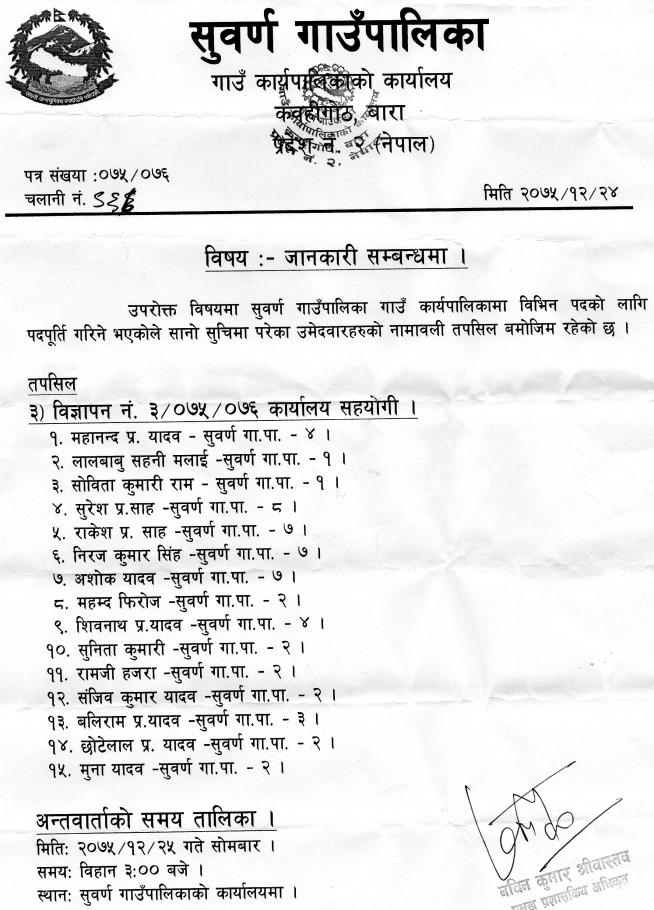 सुवर्ण गाउँपालिका
गाउँ कार्यपालिकाको कार्यालय
कवहीगोठ, बारा
प्रदेश नं. २ (नेपाल)
पत्र संखया :०७५/०७६
चलानी नं.
मिति २०७५/१२/२४
विषय :- जानकारी सम्बन्धमा ।
उपरोक्त विषयमा सुवर्ण गाउँपालिका गाउँ कार्यपालिकामा विभिन पदको लागि
पदपूर्ति गरिने भएकोले सानो सुचिमा परेका उमेदवारहरुको नामावली तपसिल बमोजिम रहेको छ ।
तपसिल
३) विज्ञापन नं. ३/०७५/०७६ कार्यालय सहयोगी ।
१. महानन्द प्र. यादव - सुवर्ण गा.पा. - ४ ।
२. लालबाबु सहनी मलाई -सुवर्ण गा.पा. - १ ।
३. सोविता कुमारी राम - सुवर्ण गा.पा. - १ ।
४. सुरेश प्र.साह -सुवर्ण गा.पा. - ८ ।
५. राकेश प्र. साह -सुवर्ण गा.पा. - ७ ।
६. निरज कुमार सिंह -सुवर्ण गा.पा. - ७ ।
७. अशोक यादव -सुवर्ण गा.पा. - ७ ।
८. महम्द फिरोज -सुवर्ण गा.पा. - २ ।
९. शिवनाथ प्र.यादव -सुवर्ण गा.पा. - ४ ।
१०. सुनिता कुमारी -सुवर्ण गा.पा. - २ ।
११. रामजी हजरा -सुवर्ण गा.पा. - २ ।
१२. संजिव कुमार यादव -सुवर्ण गा.पा. - २ ।
१३. बलिराम प्र.यादव -सुवर्ण गा.पा. - ३ ।
१४. छोटेलाल प्र. यादव -सुवर्ण गा.पा. - २ ।
१५. मुना यादव -सुवर्ण गा.पा. - २ ।
अन्तवार्ताको समय तालिका ।
मिति: २०७५/१२/२५ गते सोमबार ।
समय: विहान ३:०० बजे ।
स्थान: सुवर्ण गाउँपालिकाको कार्यालयमा ।
नविन कुमार श्रीवास्तव
प्रमुख प्रशासकिय अधिकृत